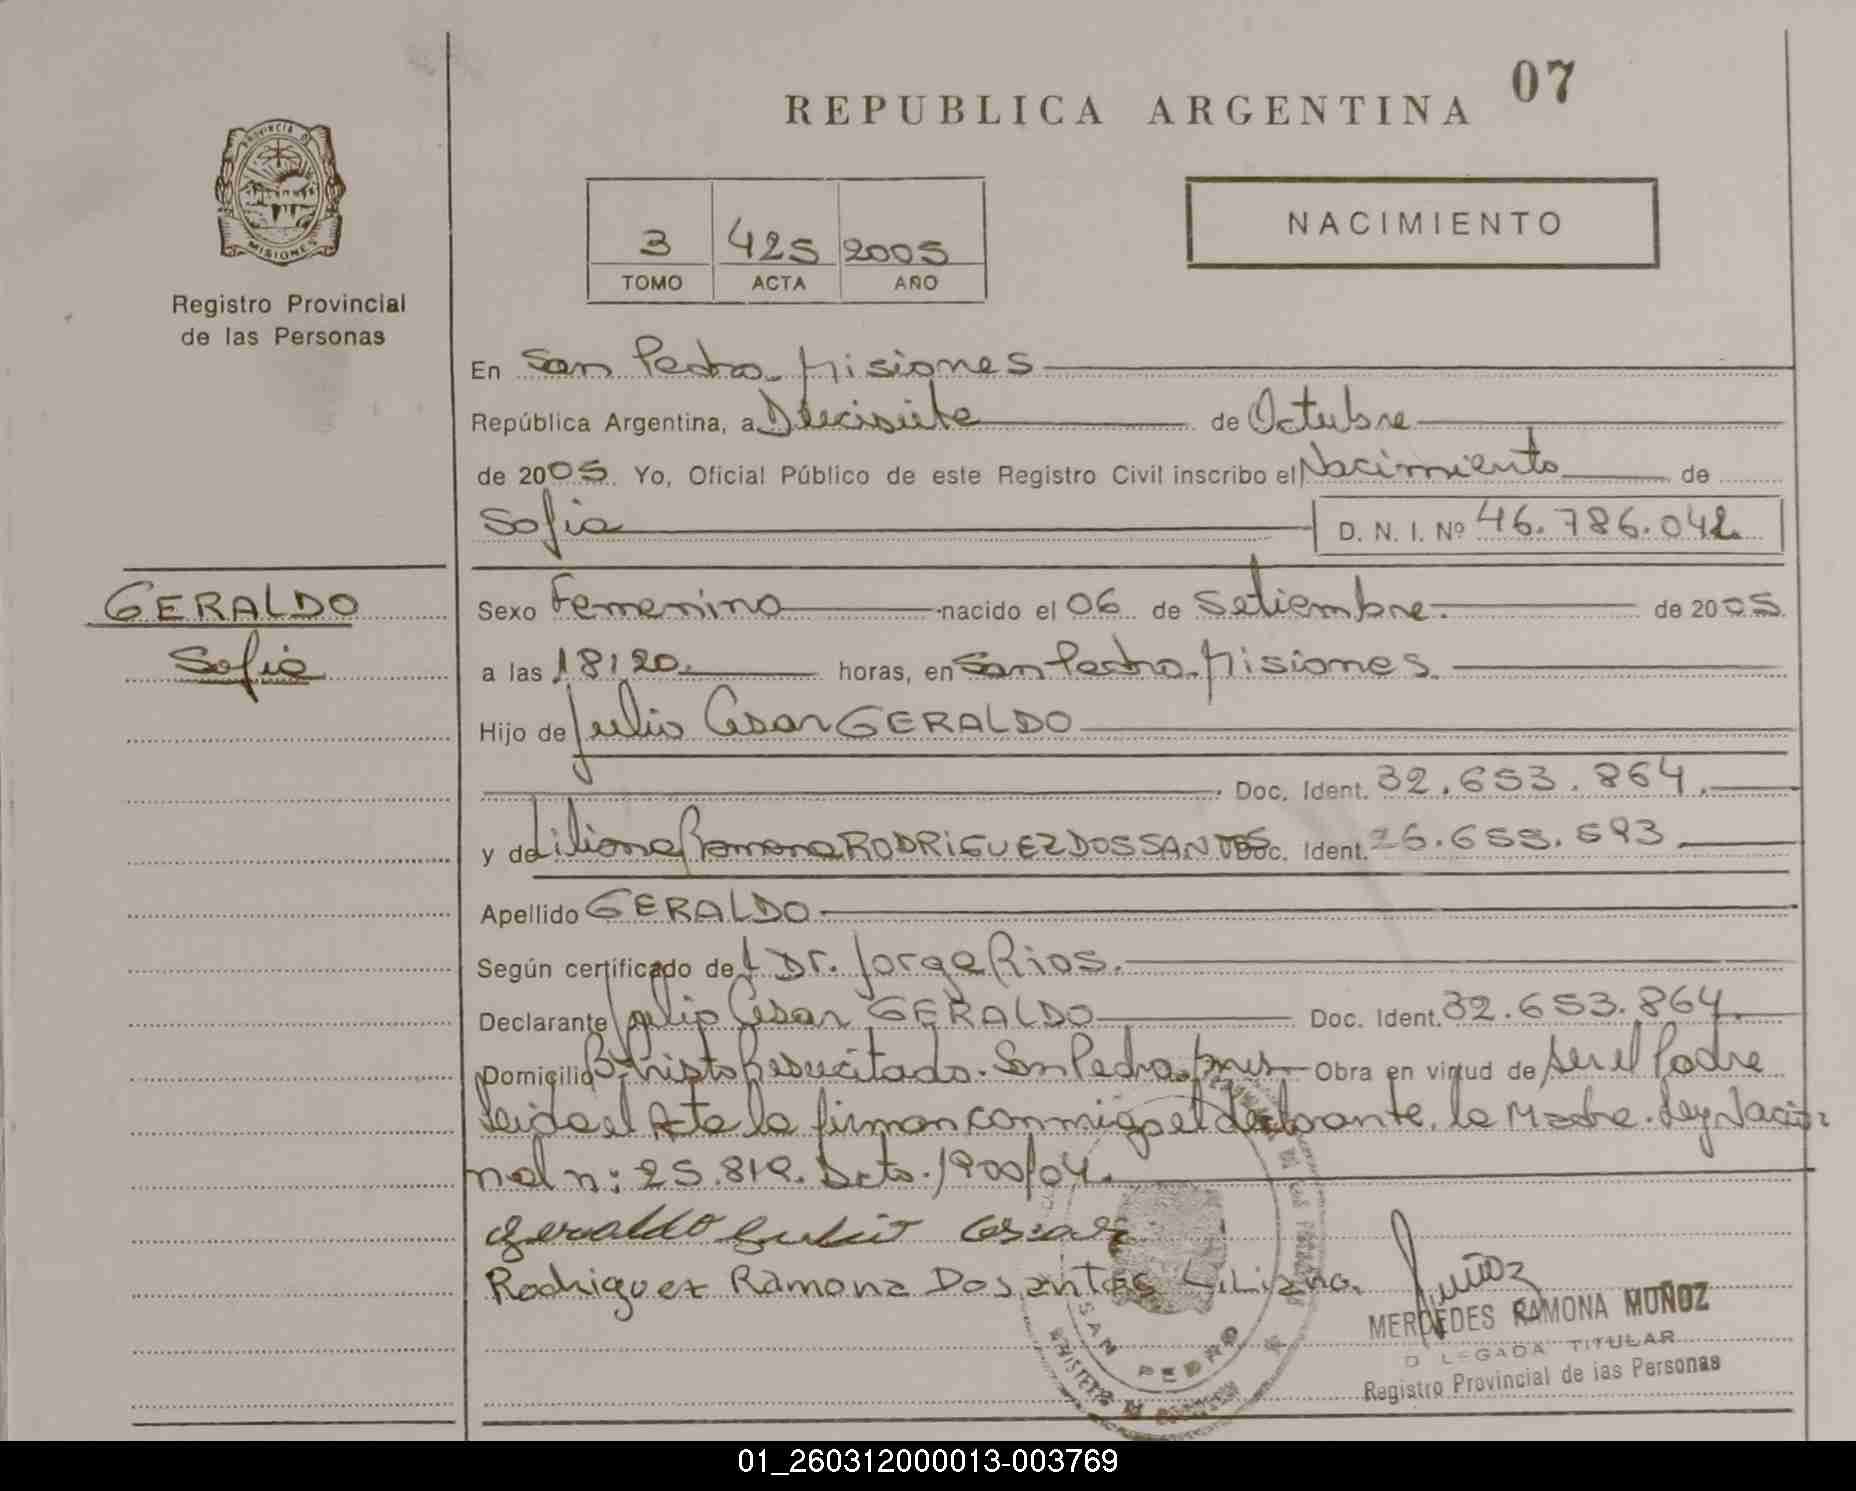 07
REPUBLICA ARGENTINA
PROVINCIA DE
MISIONES
Registro Provincial
de las Personas
3 425 2005
TOMO ACTA AÑO
NACIMIENTO
En San Pedro. Misiones
República Argentina, a Diecisiete de Octubre
de 2005. Yo, Oficial Público de este Registro Civil inscribo el Nacimiento de
Sofia D. N. I. Nº 46.786.042.
GERALDO
Sofia
Sexo Femenino nacido el 06 de Setiembre. de 2005.
a las 18,20. horas, en San Pedro. Misiones.
Hijo de Julio Cesar GERALDO
Doc. Ident. 32.653.864.
y de Liliana Ramona RODRIGUEZ DOS SANTOS Doc. Ident. 26.655.593
Apellido GERALDO
Según certificado del Dr. Jorge Rios.
Declarante Julio Cesar GERALDO Doc. Ident. 32.653.864.
Domicilio Bº Cristo Resucitado. San Pedro. Mnes Obra en virtud de ser el Padre
Leida el Acta la firman conmigo el declarante. la Madre. Ley Nacio-
nal n: 25.819. Dcto. 1900/04.
Geraldo Julio Cesar
Rodriguez Ramona Dosantos Liliana.
Muñoz
MERCEDES RAMONA MUÑOZ
DELEGADA TITULAR
Registro Provincial de las Personas
SAN PEDRO
01_260312000013-003769